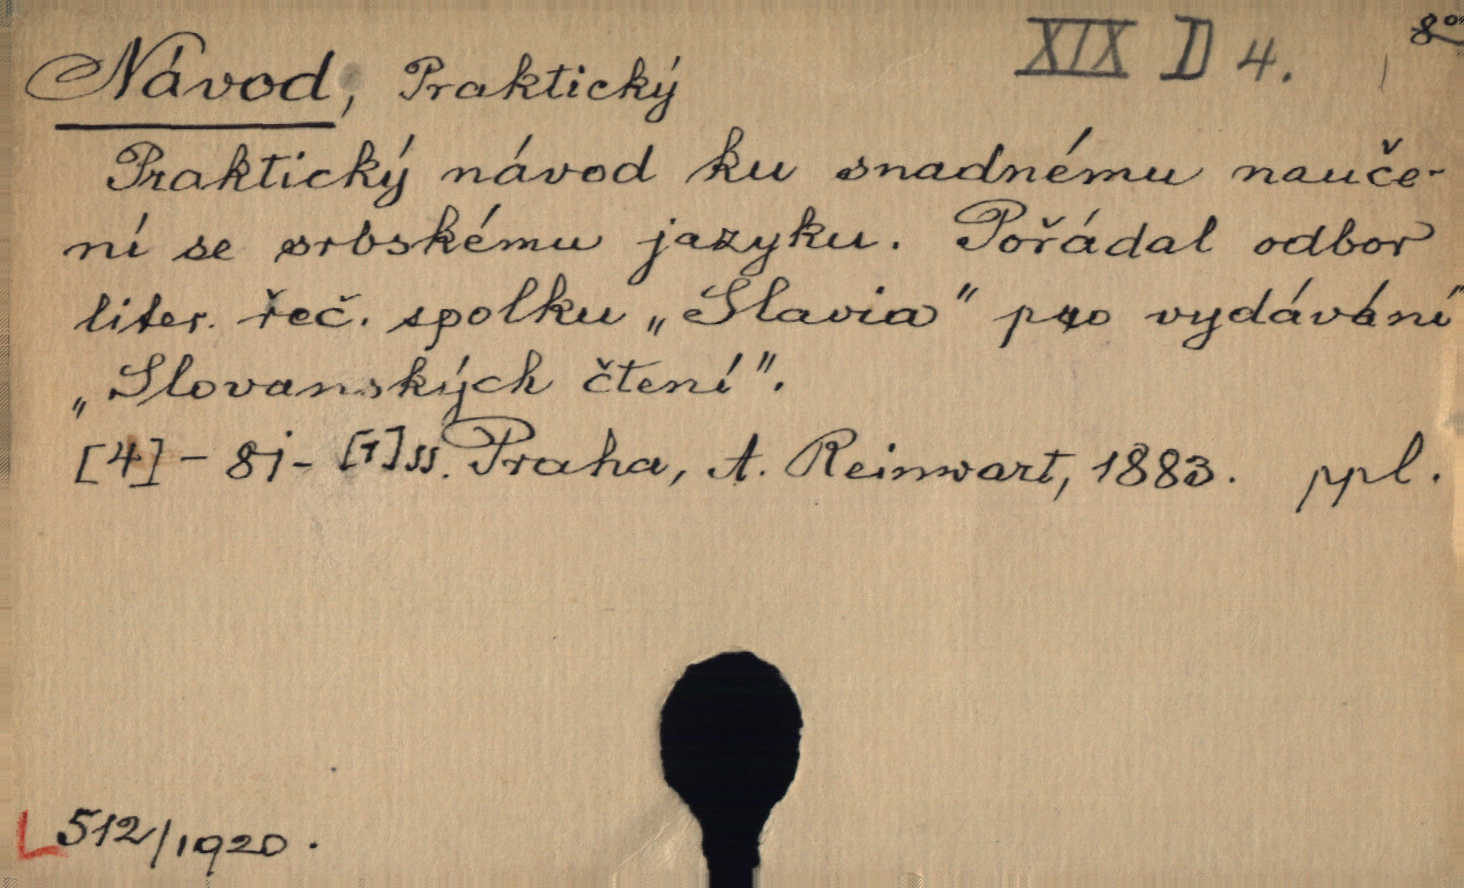 XIX D 4. 8°
Návod, Praktický
Praktický návod ku snadnému nauče-
ní se srbskému jazyku. Pořádal odbor
liter. řeč. spolku „Slavia" pro vydávání
„Slovanských čtení".
[4] - 81 - [1] ss. Praha, A. Reinwart, 1883. ppl.
L 512/1920.